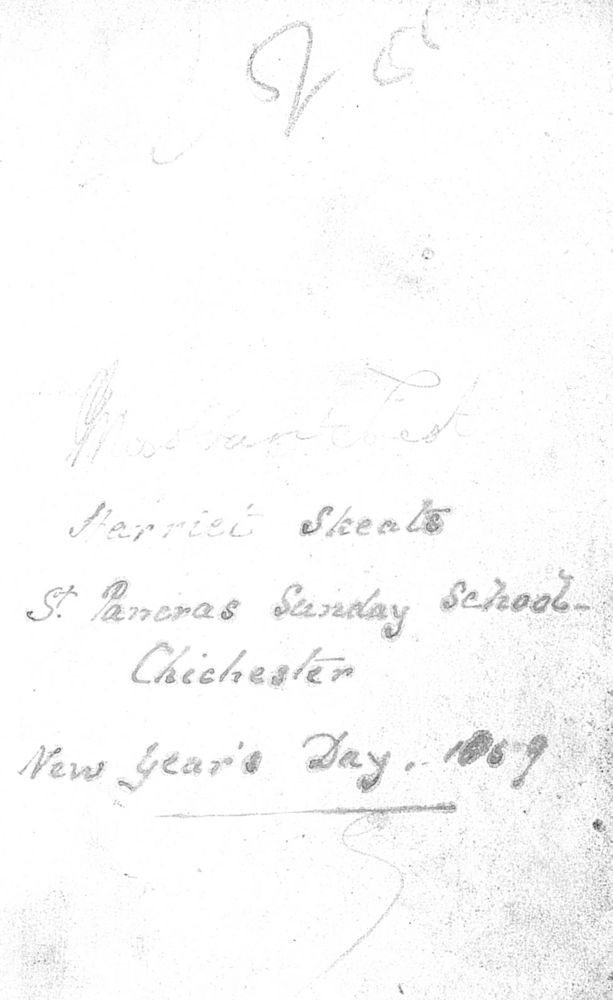 Harriet Skeats
St. Pancras Sunday School-
Chichester
New Year's Day. 1859